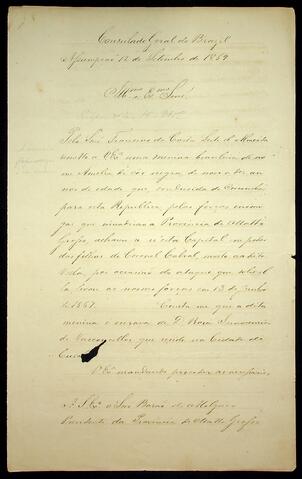 Consulado Geral do Brazil
Assumpção 12 de Setembro de 1869
Illmo e Exmo Senr
Pelo Snr Francisco da Costa Leite d'Almeida
remetto a VExa uma menina brazileira de no
me Amelia de côr negra de nove a dez an
nos de edade que, conduzida de Corumbá
para esta Republica pelas forças inimi
gas que invadirão a Provincia de Matto
Grosso, achava-se n'esta Capital em poder
das filhas do Coronel Cabral, morto
por occasião do ataque que
as nossas forças em 13 de Junho
de 1867. Consta-me que a dita
menina é escrava de D. Roza
de Vasconcellos que reside na Cidade de
Cuia
VExa mandará proceder
A S. Exa o Snr Barão de Melgaço
Presidente da Provincia de Matto Grosso